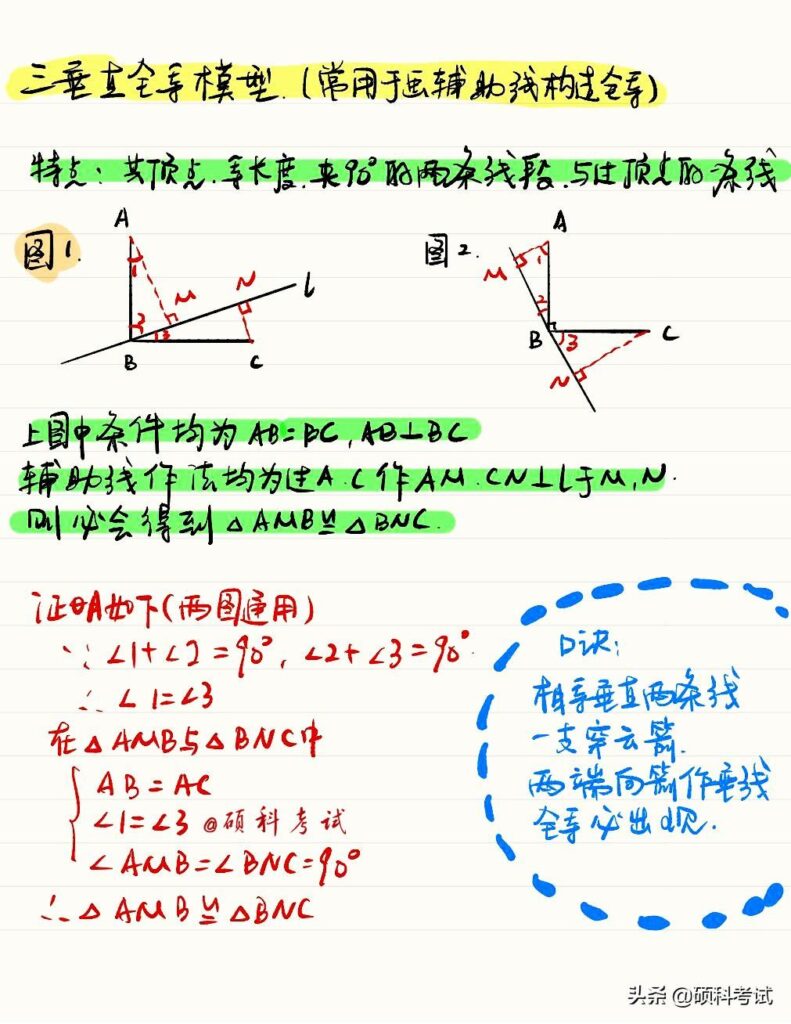 三垂直全等模型.(常用于画辅助线构造全等)
特点:共顶点.等长度.夹90°的两条线段.与过顶点的一条线
图1.
A
1
M
N
l
2
3
B
C
图2.
A
M
1
2
B
3
C
N
上图中条件均为AB=BC,AB⊥BC
辅助线作法均为过A.C作AM.CN⊥l于M,N.
则必会得到△AMB≌△BNC.
证明如下(两图通用)
∵∠1+∠2=90°,∠2+∠3=90°
∴∠1=∠3
在△AMB与△BNC中
AB=AC
∠1=∠3 @硕科考试
∠AMB=∠BNC=90°
∴△AMB≌△BNC
口诀:
相等垂直两条线
一支穿云箭.
两端向箭作垂线
全等必出现.
头条 @硕科考试